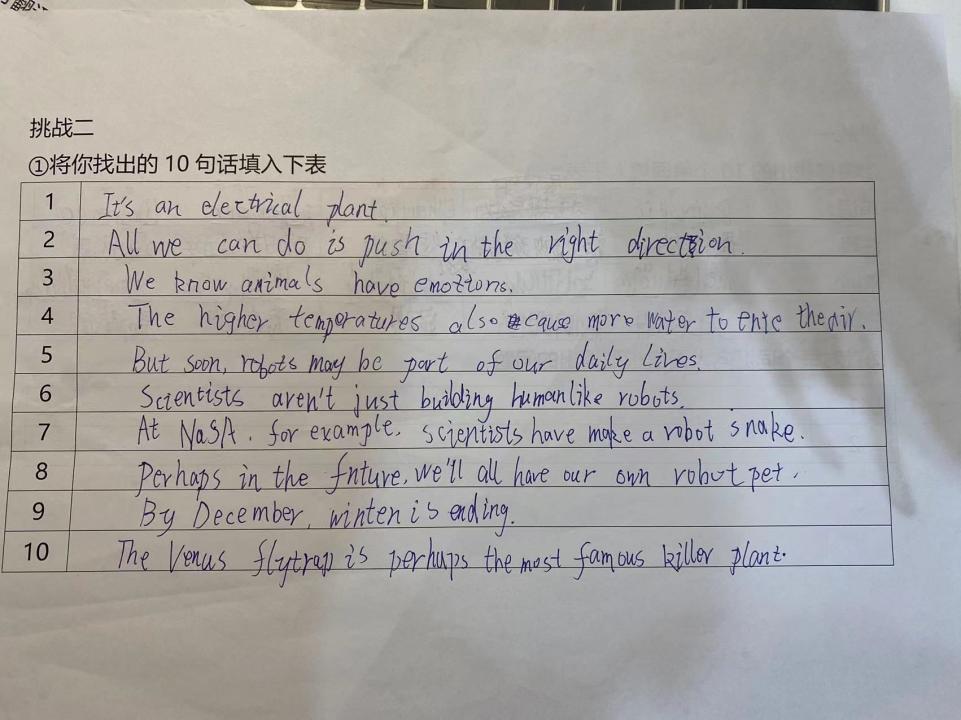 挑战二
①将你找出的 10 句话填入下表
1 It's an electrical plant.
2 All we can do is push in the right direction.
3 We know animals have emottons.
4 The higher temperatures also cause more water to ente the air.
5 But soon, robots may be part of our daily lives.
6 Scientists aren't just building humanlike robots.
7 At NaSA. for example. scientists have make a robot snake.
8 Perhaps in the fnture, we'll all have our own robot pet.
9 By December, winten is ending.
10 The Venus flytrap is perhaps the most famous killer plant.